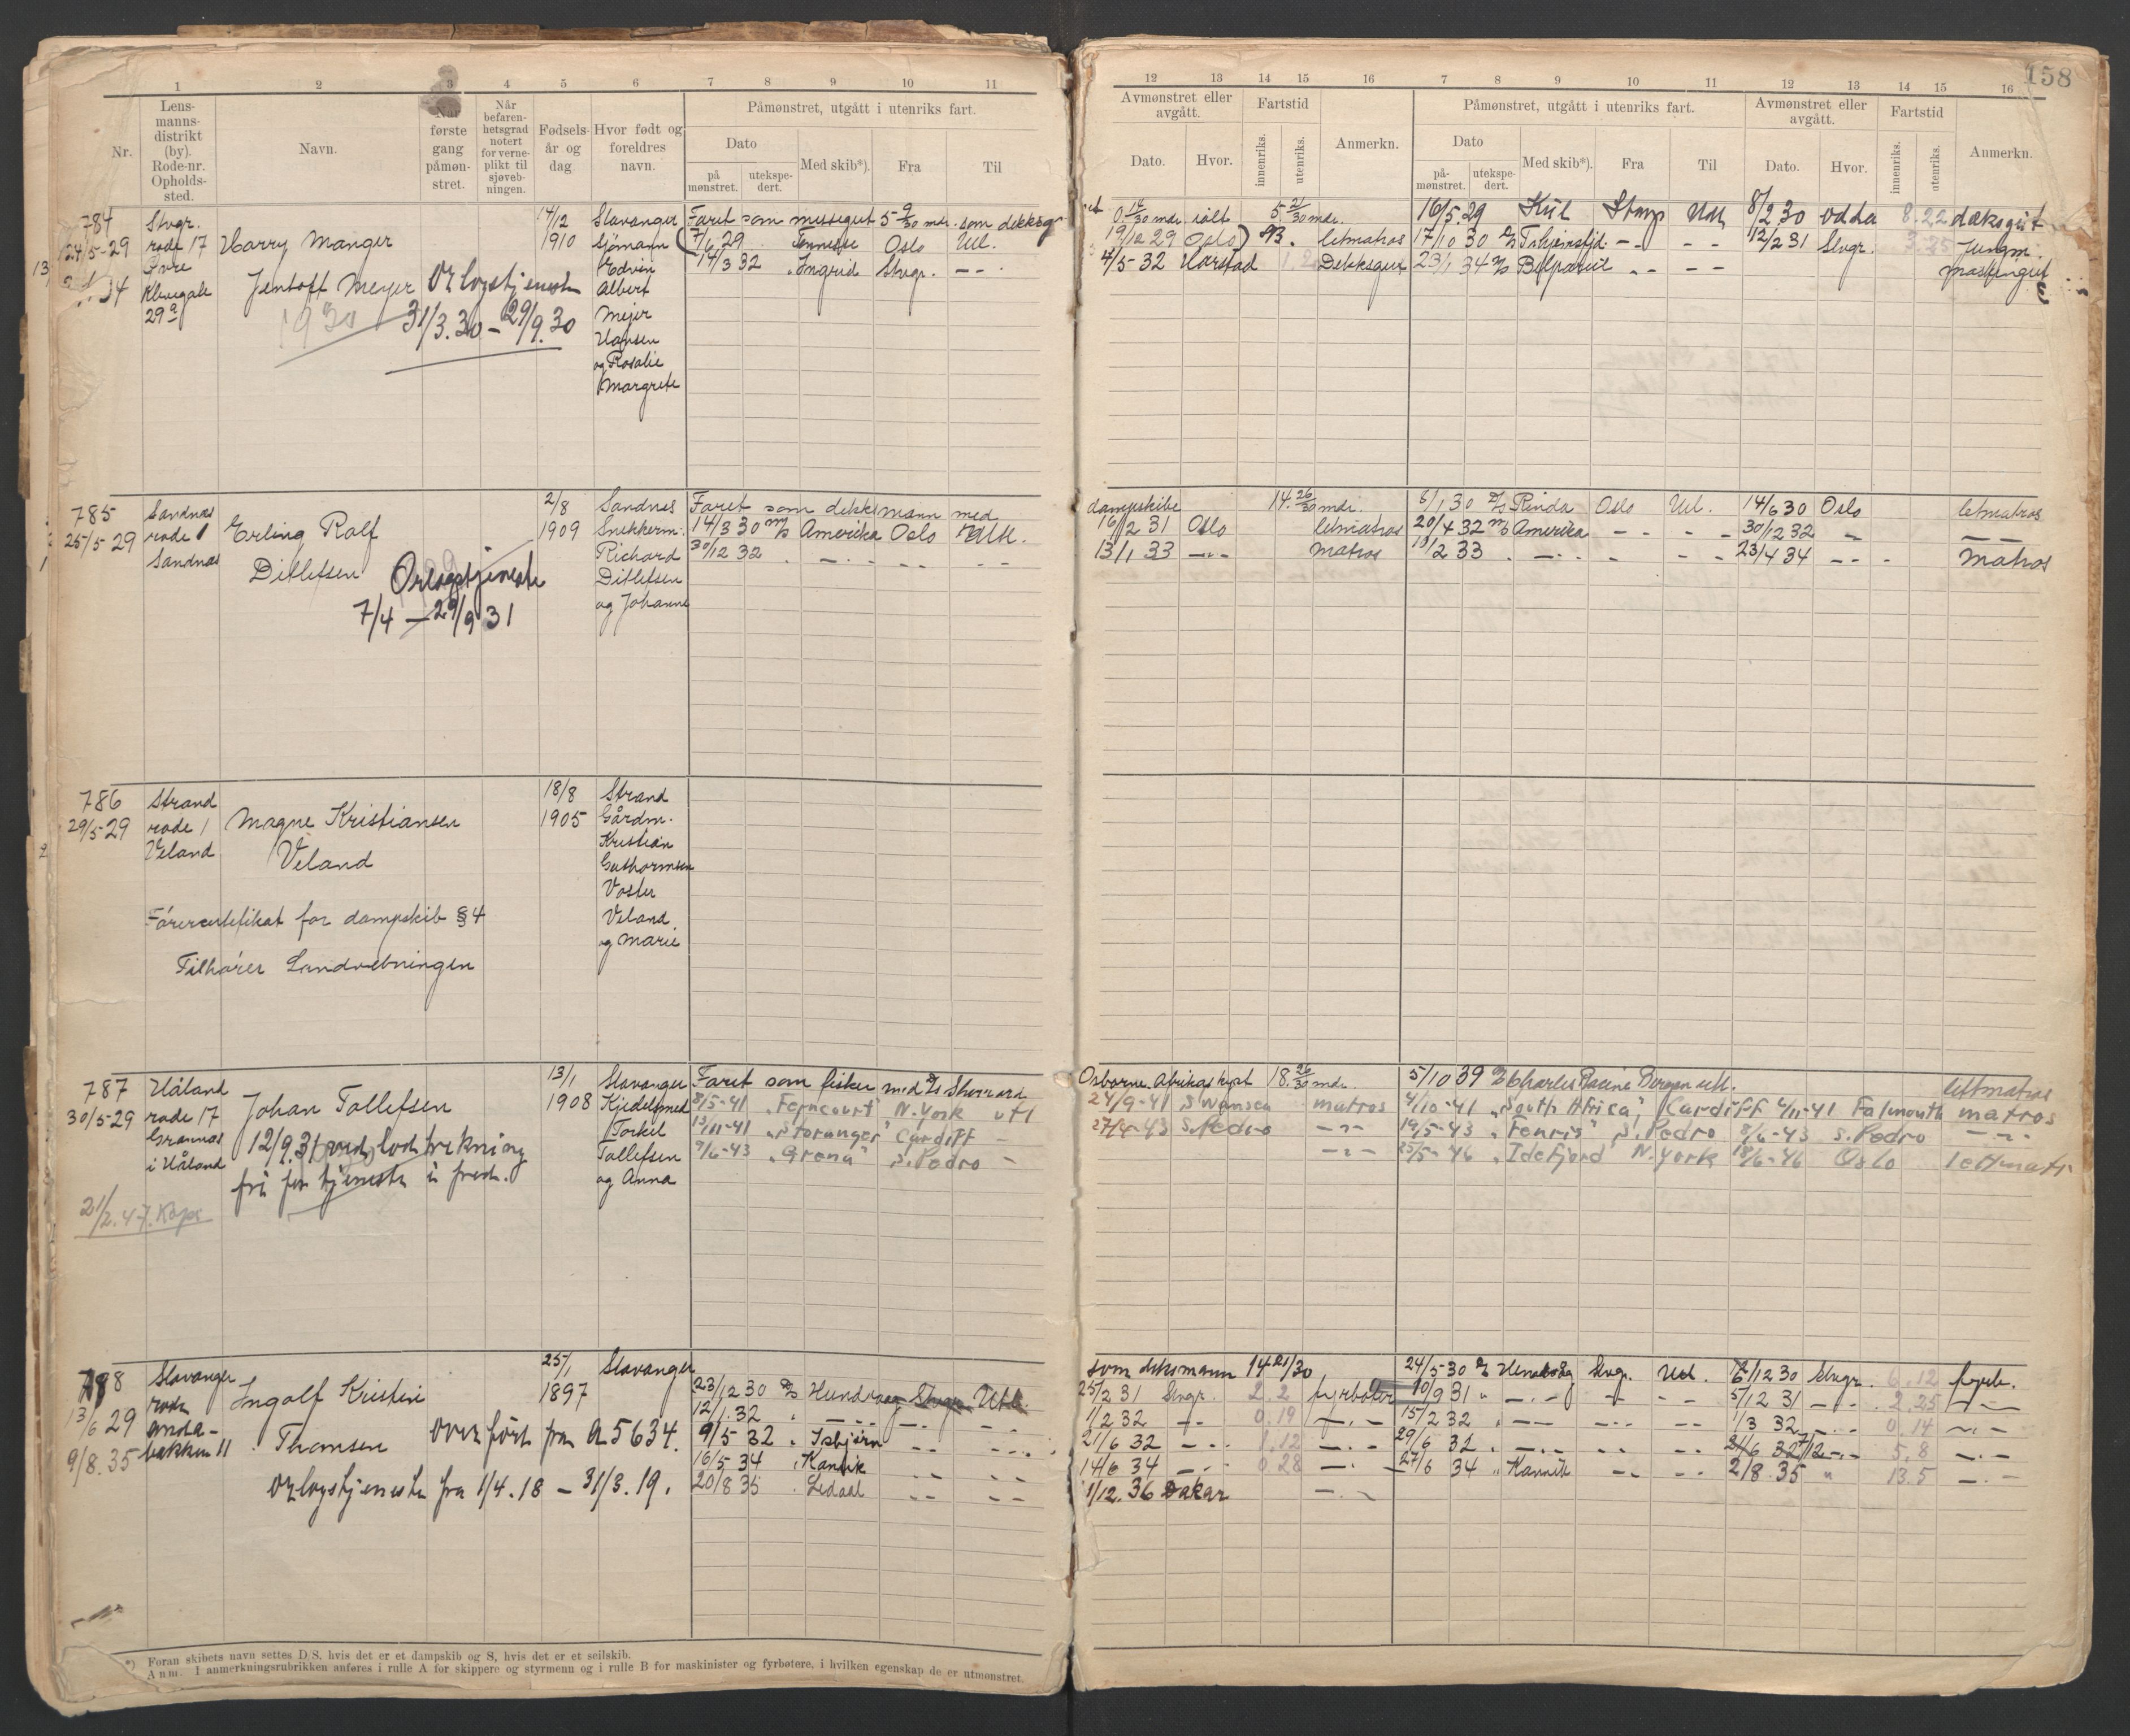 158
1 2 3 4 5 6 7 8 9 10 11
12 13 14 15 16 7 8 9 10 11 12 13 14 15 16
Nr.
Lens-
manns-
distrikt
(by).
Rode-nr.
Opholds-
sted.
Navn.
Når
første
gang
påmøn-
stret.
Når
befaren-
hetsgrad
notert
for verne-
plikt til
sjøveb-
ningen.
Fødsels-
år og
dag
Hvor født og
foreldres
navn.
Påmønstret, utgått i utenriks fart.
Dato
på
mønstret.
utekspe-
dert.
Med skib*).
Fra
Til
Avmønstret eller
avgått.
Dato.
Hvor.
Fartstid
innenriks.
utenriks.
Anmerkn.
Påmønstret, utgått i utenriks fart.
Dato
på-
mønstret.
utekspe-
dert.
Med skib*).
Fra
Til
Avmønstret eller
avgått.
Dato.
Hvor.
Fartstid
innenriks.
utenriks.
Anmerkn.
784
24/5-29
Stvgr.
rode 17
Øvre
29 a
Harry Manger
Jentoft Meyer
Orlogstjeneste
1930
31/3.30 - 29/9.30
14/12
1910
Stavanger
Sjömann
Edvin
Albert
Mejer
Hansen
og Rosalie
Margrete
Faret som messegut 5 9/30 mdr. som dekksg
7/6 29 Tennesse Oslo Utl.
14/3 32 Ingrid Stvgr. - - -
0 14/30 mdr. ialt 5 21/30 mdr.
19/12 29 Oslo) 93. letmatros
4/5-32 Harstad Dekksgut
16/5.29 Stvgr Utl 8/2 30 Odda 8.22 dæksgut
17/10 30 - - - - 12/2 31 Stvgr. 3.25 Jungm.
23/1 34 Belpareil - - - - maskingut
785
25/5-29
Sandnes
rode 1
Sandnes
Erling Rolf
Ditlefsen
Orlogstjeneste
7/4 - 29/9 31
2/8
1909
Sandnes
Snekkerm.
Richard
Ditlefsen
og Johanne
Faret som dekksmann med
14/3 30 M/S Amerika Oslo Utl.
30/12 32 - - - - - -
dampskibe 14 26/30 mdr.
16/2 31 Oslo letmatros
13/1 33 - - - matros
8/1 30 D/S Rinda Oslo Utl. 14/6 30 Oslo letmatros
20/4 32 M/S Amerika - - - - 30/12 32 - - -
13/2 33 - - - - - - 23/4 34 - - - matros
786
29/5-29
Strand
rode 1
Veland
Magne Kristiansen
Veland
Førercertifikat for dampskib §4
Tilhører Landvebningen
18/8
1905
Strand
Gårdm.
Kristian
Guthormsen
Voster
Veland
og Marie
787
30/5-29
Håland
rode 17
Grannes
i Håland
Johan Tollefsen
12/9.31 ved lodtrekning
fri for tjeneste i fred.
21/2.47.
13/1
1908
Stavanger
Kjedelsmed
Torkel
Tollefsen
og Anna
Faret som fisker med D/S
8/5-41 "Ferncourt" N.York utl
13/11-41 "Storanger" Cardiff -
9/6-43 "Grena" S.Pedro -
Osborne. 18 26/30 mdr.
24/9-41 Swansea matros
27/4-43 S.Pedro - " -
- " -
5/10 39 Charles Racine Bergen utl. lettmatros
4/10-41 "South Africa", Cardiff 4/11-41 Falmouth matros
19/5-43 "Fenris" S.Pedro 8/6-43 S.Pedro - " -
25/5-46 "Idefjord" N.York 18/6-46 Oslo lettmatr
788
13/6 29
9/8.35
Stavanger
rode
anda-
bakken 11
Ingolf Kristian
Thomsen
Overført fra A 5634.
Orlogstjeneste fra 1/4.18 - 31/3.19.
25/1
1897
Stavanger
23/12 30 D/S Hundvaag Stvgr Utl.
12/1.32 - - - - - -
9/5 32 " Isbjørn - - - -
16/5 34 " Kannik - - - -
20/8 35 " Ledaal - - - -
som deksmann 14 21/30
25/2 31 Stvgr. 2.2 fyrbøter
1/2 32 - - 0.19 - " -
21/6 32 - - 1.12 - " -
14/6 34 - - 0.28 - " -
1/12.36 Dakar - " -
24/5-30 D/S Hundvåg Stvgr. Utl. 6/12 30 Stvgr. 6.12 fyrb.
10/9 31 " - - - - 5/12 31 - - 2.25 - " -
15/2 32 " - - - - 1/3 32 - - 0.14 - " -
29/6 32 " - - - - 7/12 - - 5.8 - " -
27/6 34 " Kannik - - - - 2/8.35 " 13.5 - " -
*) Foran skibets navn settes D/S, hvis det er et dampskib og S, hvis det er et seilskib.
Anm. I anmerkningsrubrikken anføres i rulle A for skippere og styrmenn og i rulle B for maskinister og fyrbøtere, i hvilken egenskap de er utmønstret.